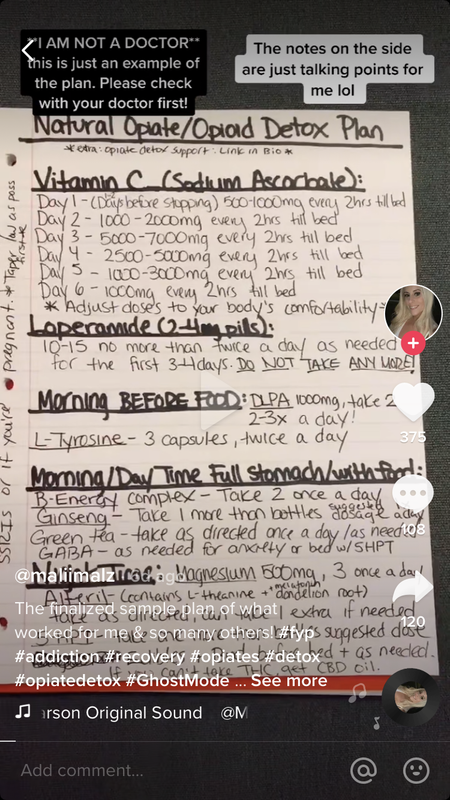 **I AM NOT A DOCTOR**
this is just an example of
the plan. Please check
with your doctor first!
The notes on the side
are just talking points for
me lol
Natural Opiate/Opioid Detox Plan
*extra: opiate detox support: Link in Bio*
Vitamin C (Sodium Ascorbate):
Day 1 - (Days before stopping) 500-1000mg every 2hrs till bed
Day 2 - 1000-2000mg every 2hrs till bed
Day 3 - 5000-7000mg every 2hrs till bed
Day 4 - 2500-5000mg every 2hrs till bed
Day 5 - 1000-3000mg every 2hrs till bed
Day 6 - 1000mg every 2hrs till bed
* Adjust doses to your body's comfortability
Loperamide (2-4mg pills):
10-15 no more than twice a day as needed
for the first 3-4 days. DO NOT TAKE ANY MORE!
Morning BEFORE FOOD: DLPA 1000mg, take 2
2-3x a day!
L-Tyrosine - 3 capsules, twice a day
Morning/Day Time Full Stomach/with food:
B-Energy complex - Take 2 once a day
Ginseng - Take 1 more than bottles suggested dosage a day
Green tea - take as directed once a day/as needed
GABA - as needed for anxiety or bed w/5HPT
Night Time: Magnesium 500mg, 3 once a day
Alteril - (contains L-theanine + melatonin dandelion root)
take as directed, can take 1 extra if needed
suggested dose
bed + as needed.
If can't take THC get CBD oil.
SSRIs or if you're pregnant. * Taper low as poss first *
375
108
120
@maliimalz
The finalized sample plan of what
worked for me & so many others! #fyp
#addiction #recovery #opiates #detox
#opiatedetox #GhostMode ... See more
arson Original Sound @M
Add comment...